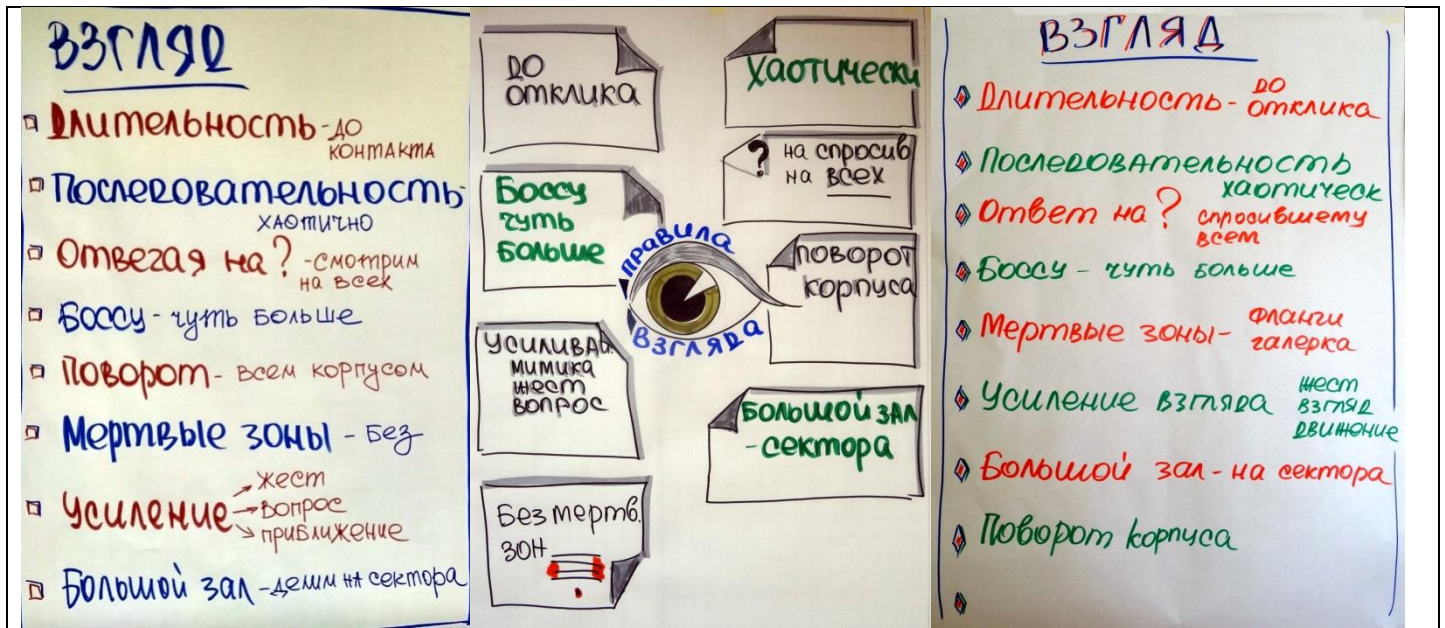 ВЗГЛЯД
Длительность - до
контакта
Последовательность -
хаотично
Отвечая на? - смотрим
на всех
Боссу - чуть больше
Поворот - всем корпусом
Мертвые зоны - Без
Усиление
жест
вопрос
приближение
Большой зал - делим на сектора
до
отклика
Хаотически
? на спросив
на всех
Боссу
чуть
больше
правила
взгляда
поворот
корпуса
Усиливай.
мимика
жест
вопрос
Большой зал
- сектора
Без мертв.
зон
ВЗГЛЯД
Длительность - до
отклика
Последовательность
хаотическ
Ответ на? спросившему
всем
Боссу - чуть больше
Мертвые зоны - фланги
галерка
Усиление взгляда
жест
взгляд
движение
Большой зал - на сектора
Поворот корпуса